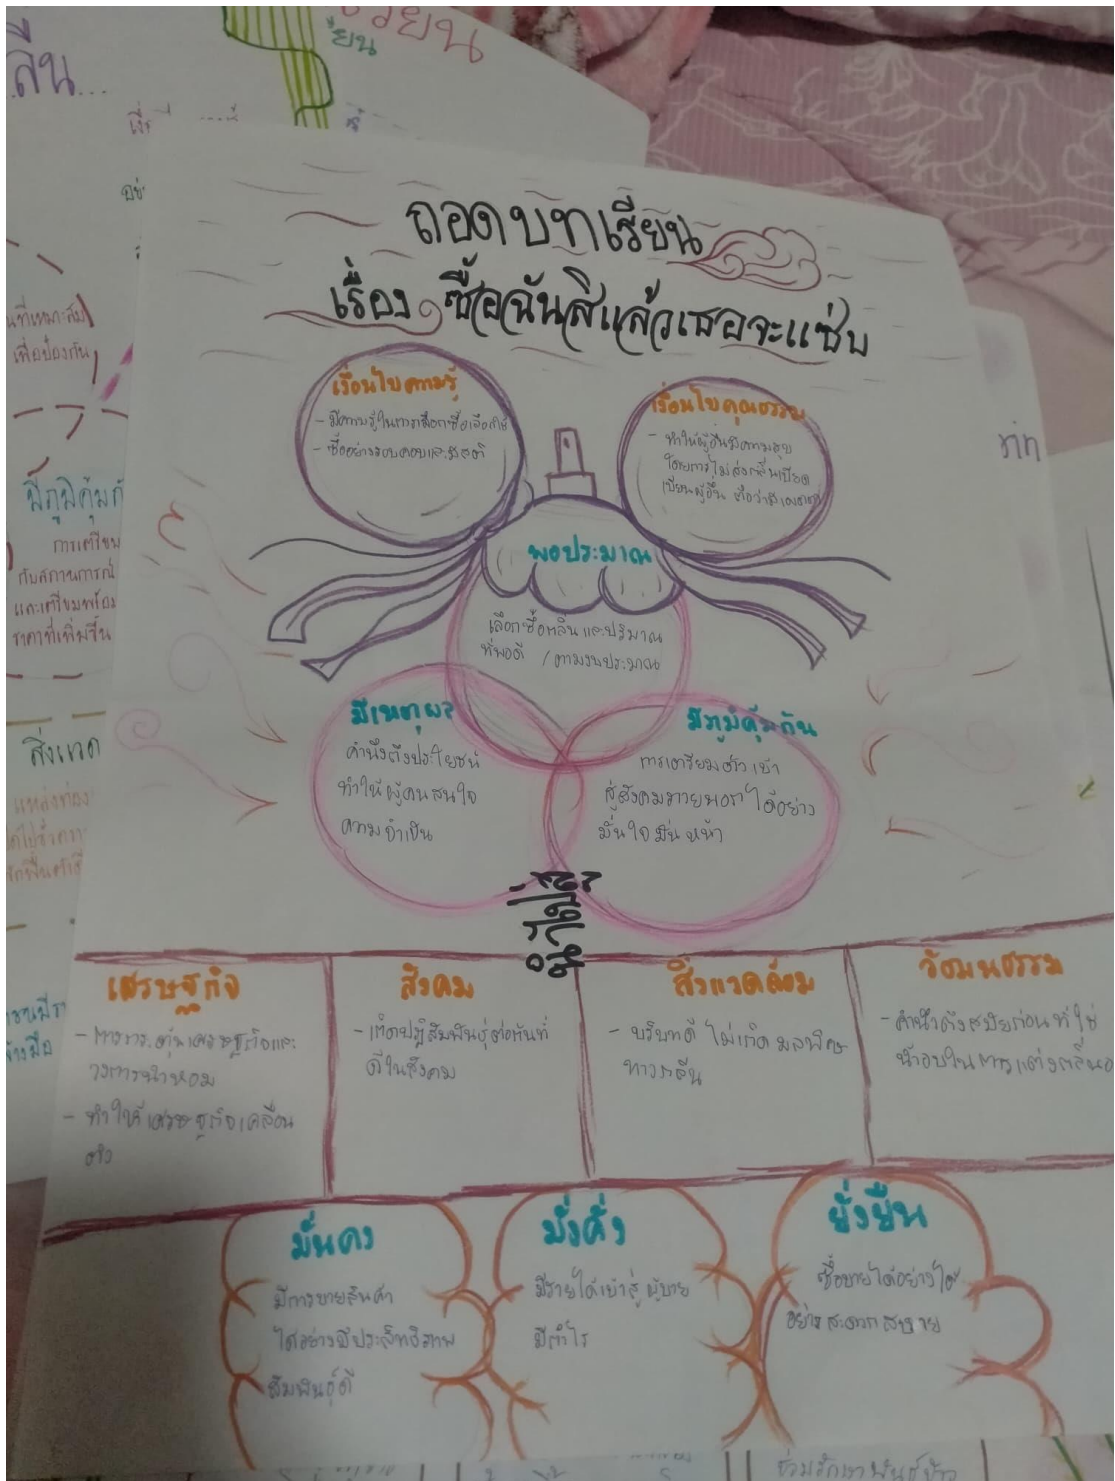 ถอดบทเรียน
เรื่อง ซื้อฉันสิแล้วเธอจะแซ่บ
เงื่อนไขความรู้
- มีความรู้ในการเลือกซื้อเลือกใช้
- ซื้ออย่างรอบคอบและมีสติ
เงื่อนไขคุณธรรม
- ทำให้ผู้อื่นมีความสุข
โดยการไม่ส่งกลิ่นเบียด
เบียนผู้อื่น
พอประมาณ
เลือกซื้อกลิ่นและปริมาณ
ที่พอดี /ตามงบประมาณ
มีเหตุผล
คำนึงถึงประโยชน์
ทำให้ผู้คนสนใจ
ความจำเป็น
มีภูมิคุ้มกัน
การเตรียมตัวเข้า
สู่สังคม ได้อย่าง
มั่นใจ หน้า
เศรษฐกิจ
- การกระตุ้นเศรษฐกิจและ
วงการน้ำหอม
- ทำให้เศรษฐกิจเคลื่อน
ตัว
สังคม
- เกิดปฏิสัมพันธ์ต่อกันที่
ดีในสังคม
สิ่งแวดล้อม
- บริบทดี ไม่เกิดมลพิษ
ทางกลิ่น
วัฒนธรรม
- คำนึงถึงสมัยก่อนที่ใช้
น้ำอบในการแต่งกลิ่น
มั่นคง
มีการขายสินค้า
ได้อย่างมีประสิทธิภาพ
สัมพันธ์ดี
มั่งคั่ง
มีรายได้เข้าสู่ผู้ขาย
มีกำไร
ยั่งยืน
ซื้อขายได้อย่างได้
อย่างสะดวกสบาย
มีภูมิคุ้มกั
การเตรียม
กับสถานการณ์
และเตรียมพร้อม
ราคาที่เพิ่มขึ้น
สิ่งแวด
เพื่อป้องกัน